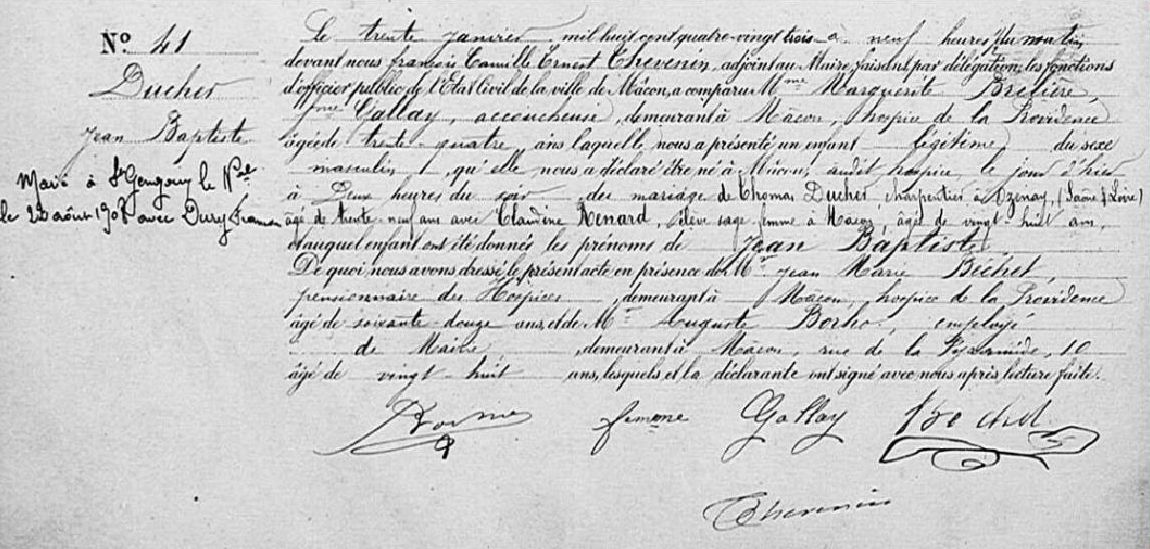 N° 41
Ducher
Jean Baptiste
Marié à St Gengoux le Nal
le 28 août 1907 avec Dury
Le trente janvier mil huit cent quatre-vingt trois à neuf heures du matin
devant nous françois Camille Ernest Thevenin, adjoint au Maire, faisant par délégation, les fonctions
d'officier public de l'Etat Civil de la ville de Mâcon, a comparu Mme Marguerite
fme Gallay, accoucheuse, demeurant à Mâcon, hospice de la Providence
âgée de trente-quatre ans laquelle nous a présenté un enfant légitime du sexe
masculin, qu'elle nous a déclaré être né à Mâcon, audit hospice, le jour d'hier
à Deux heures du soir des mariage de Thomas Ducher, charpentier à Ozenay, (Saône & Loire)
âgé de trente-neuf ans avec Claudine Renard, élève sage femme à Macon, âgée de vingt-huit ans,
et auquel enfant ont été donnés les prénoms de Jean Baptiste
De quoi, nous avons dressé le présent acte en présence de Mr Jean Marie Bichet,
pensionnaire des Hospices, demeurant à Macon, hospice de la Providence
âgé de soixante-douze ans, et de Mr Auguste employé
de Mairie, demeurant à Mâcon, rue de la 10
âgé de vingt-huit ans, lesquels et la déclarante ont signé avec nous après lecture faite.
femme Gallay
Thevenin